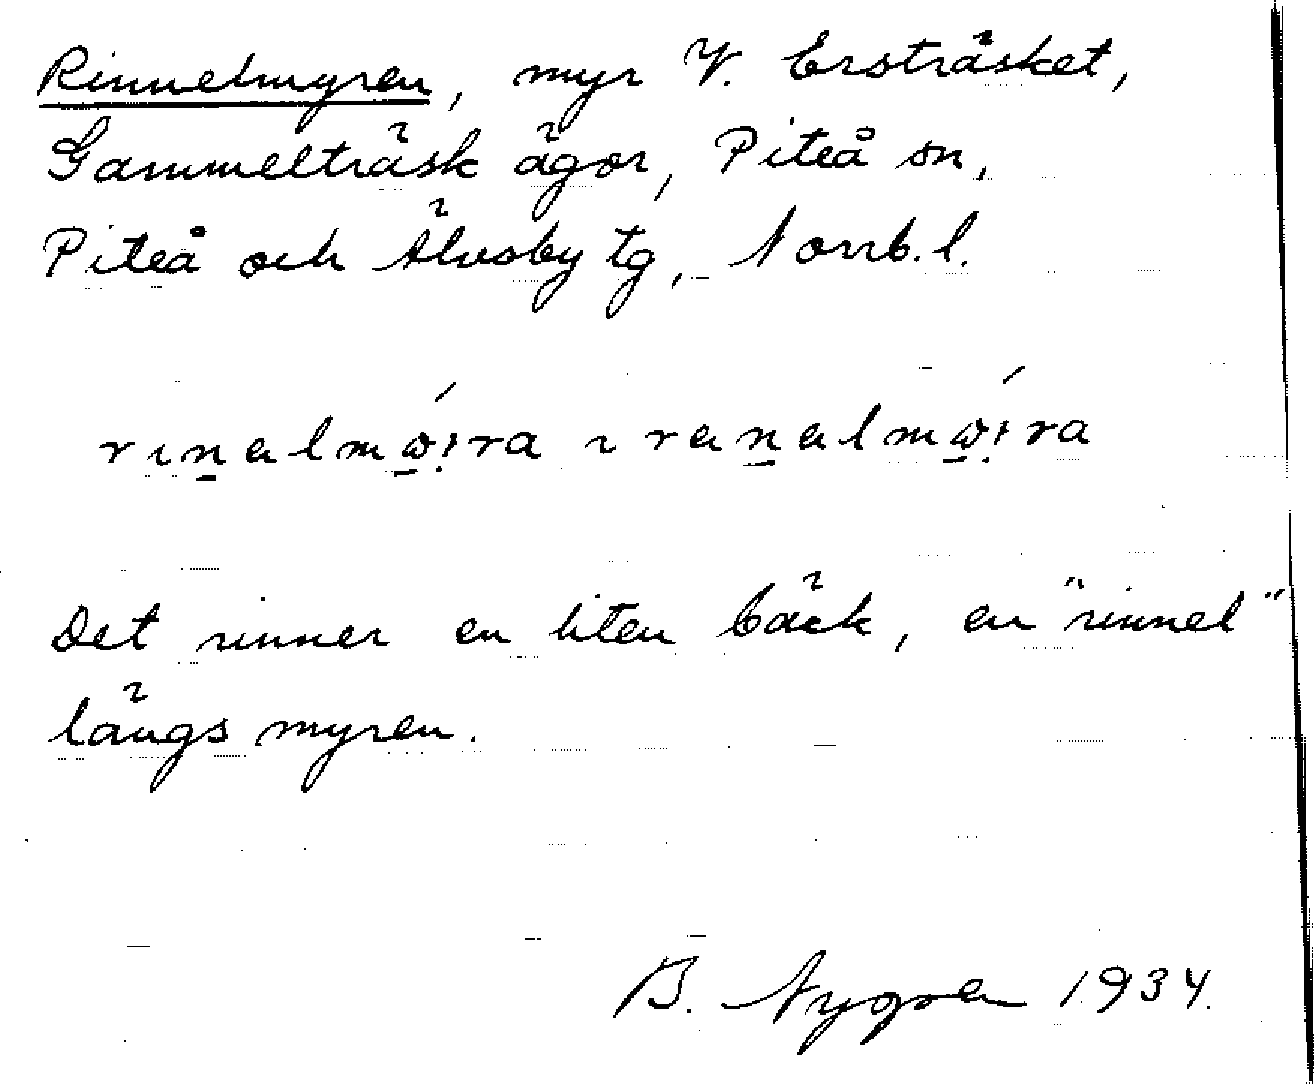 Rinnelmyren, myr V. Ersträsket,
Gammelträsk ägor, Piteå sn,
Piteå och Älvsby tg, Norrb. l.
Det rinner en liten bäck, en "rinnel"
längs myren.
B. Nygren 1934.